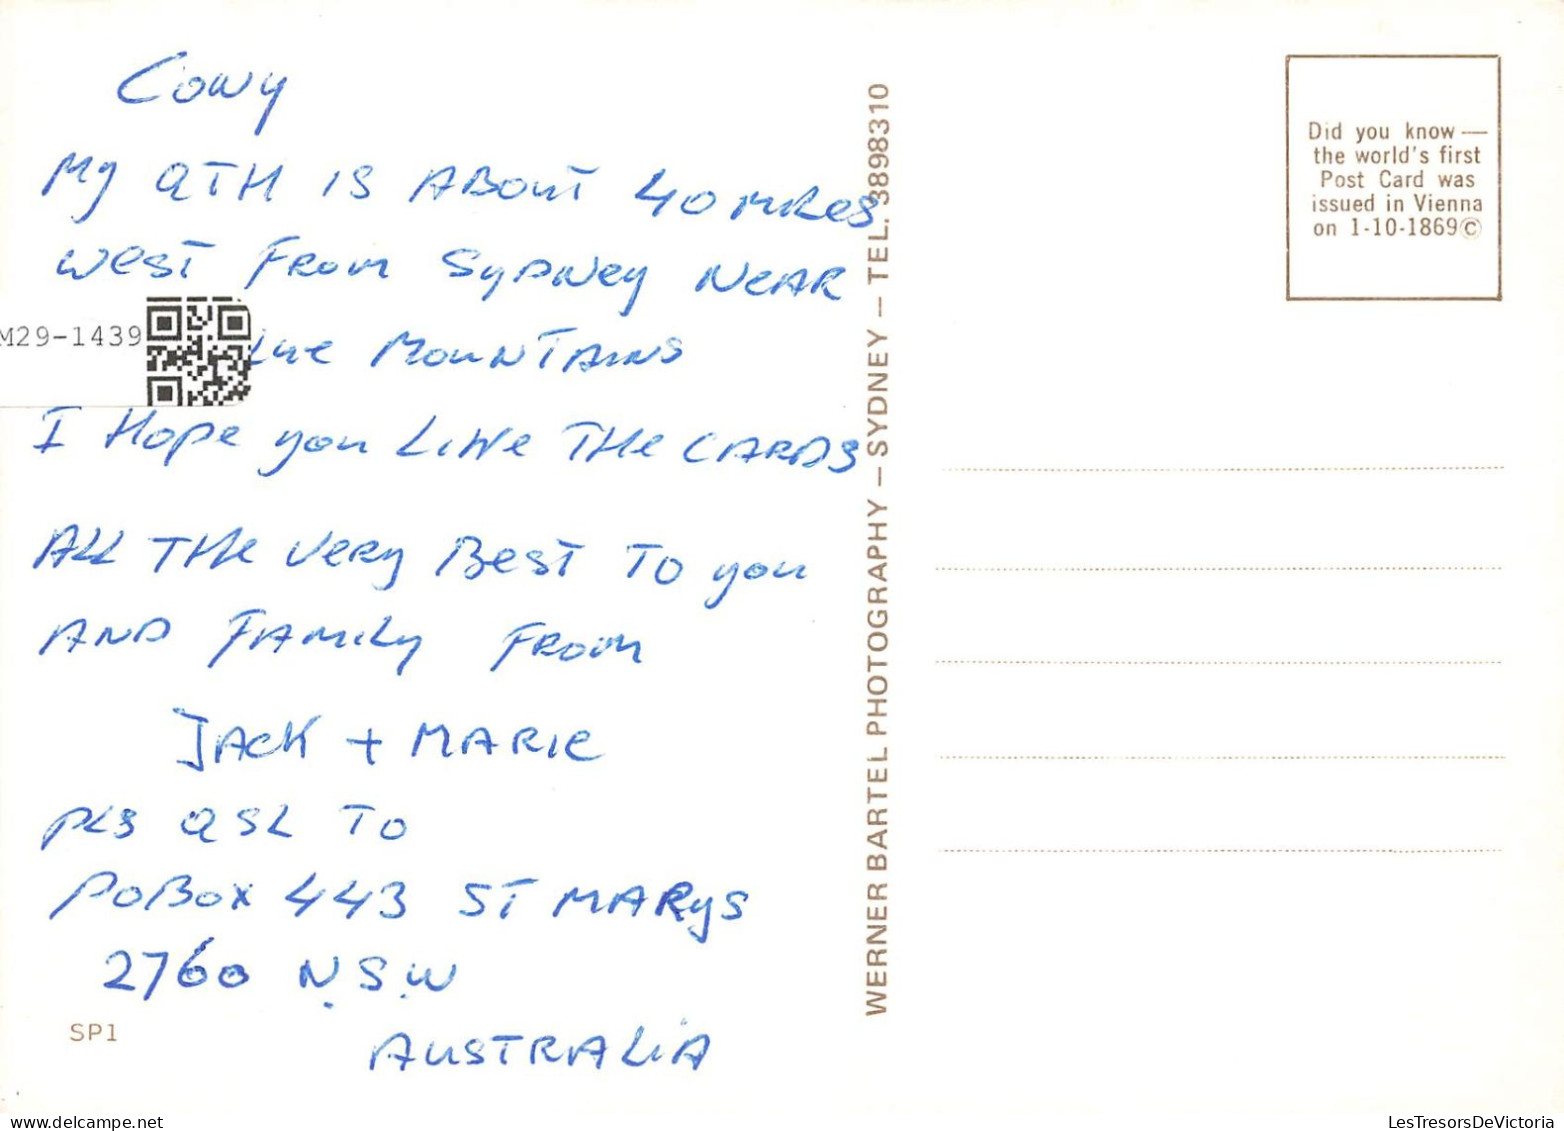 Cowy
My QTH IS ABOUT 40 MILES
WEST FROM SYDNEY NEAR
MOUNTAINS
I HOPE you LIKE THE CARDS
ALL THE VERY BEST TO you
AND FAMILY FROM
JACK + MARIE
PLS QSL TO
PO BOX 443 ST MARYS
2760 N.S.W
AUSTRALIA
M29-1439
SP1
WERNER BARTEL PHOTOGRAPHY — SYDNEY — TEL. 3898310
Did you know —
the world's first
Post Card was
issued in Vienna
on 1-10-1869©
LesTresorsDeVictoria